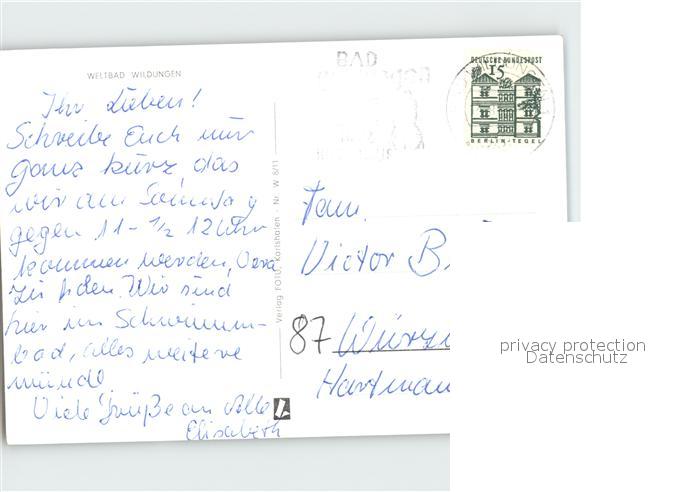 WELTBAD WILDUNGEN
Ihr Lieben!
Schreibe Euch nur
ganz kurz, das
wir am Samstag
gegen 11 - 1/2 12 Uhr
kommen werden,
Wir sind
hier im Schwimm-
bad, alles weitere
mündl.
Viele Grüße an Alle
Elisabeth
Verlag FOTO, Karlshafen · Nr. W 8/11
BAD
DEUTSCHE BUNDESPOST
15
BERLIN-TEGEL
Fam.
Victor B.
87 Würz
Hartman
privacy protection
Datenschutz